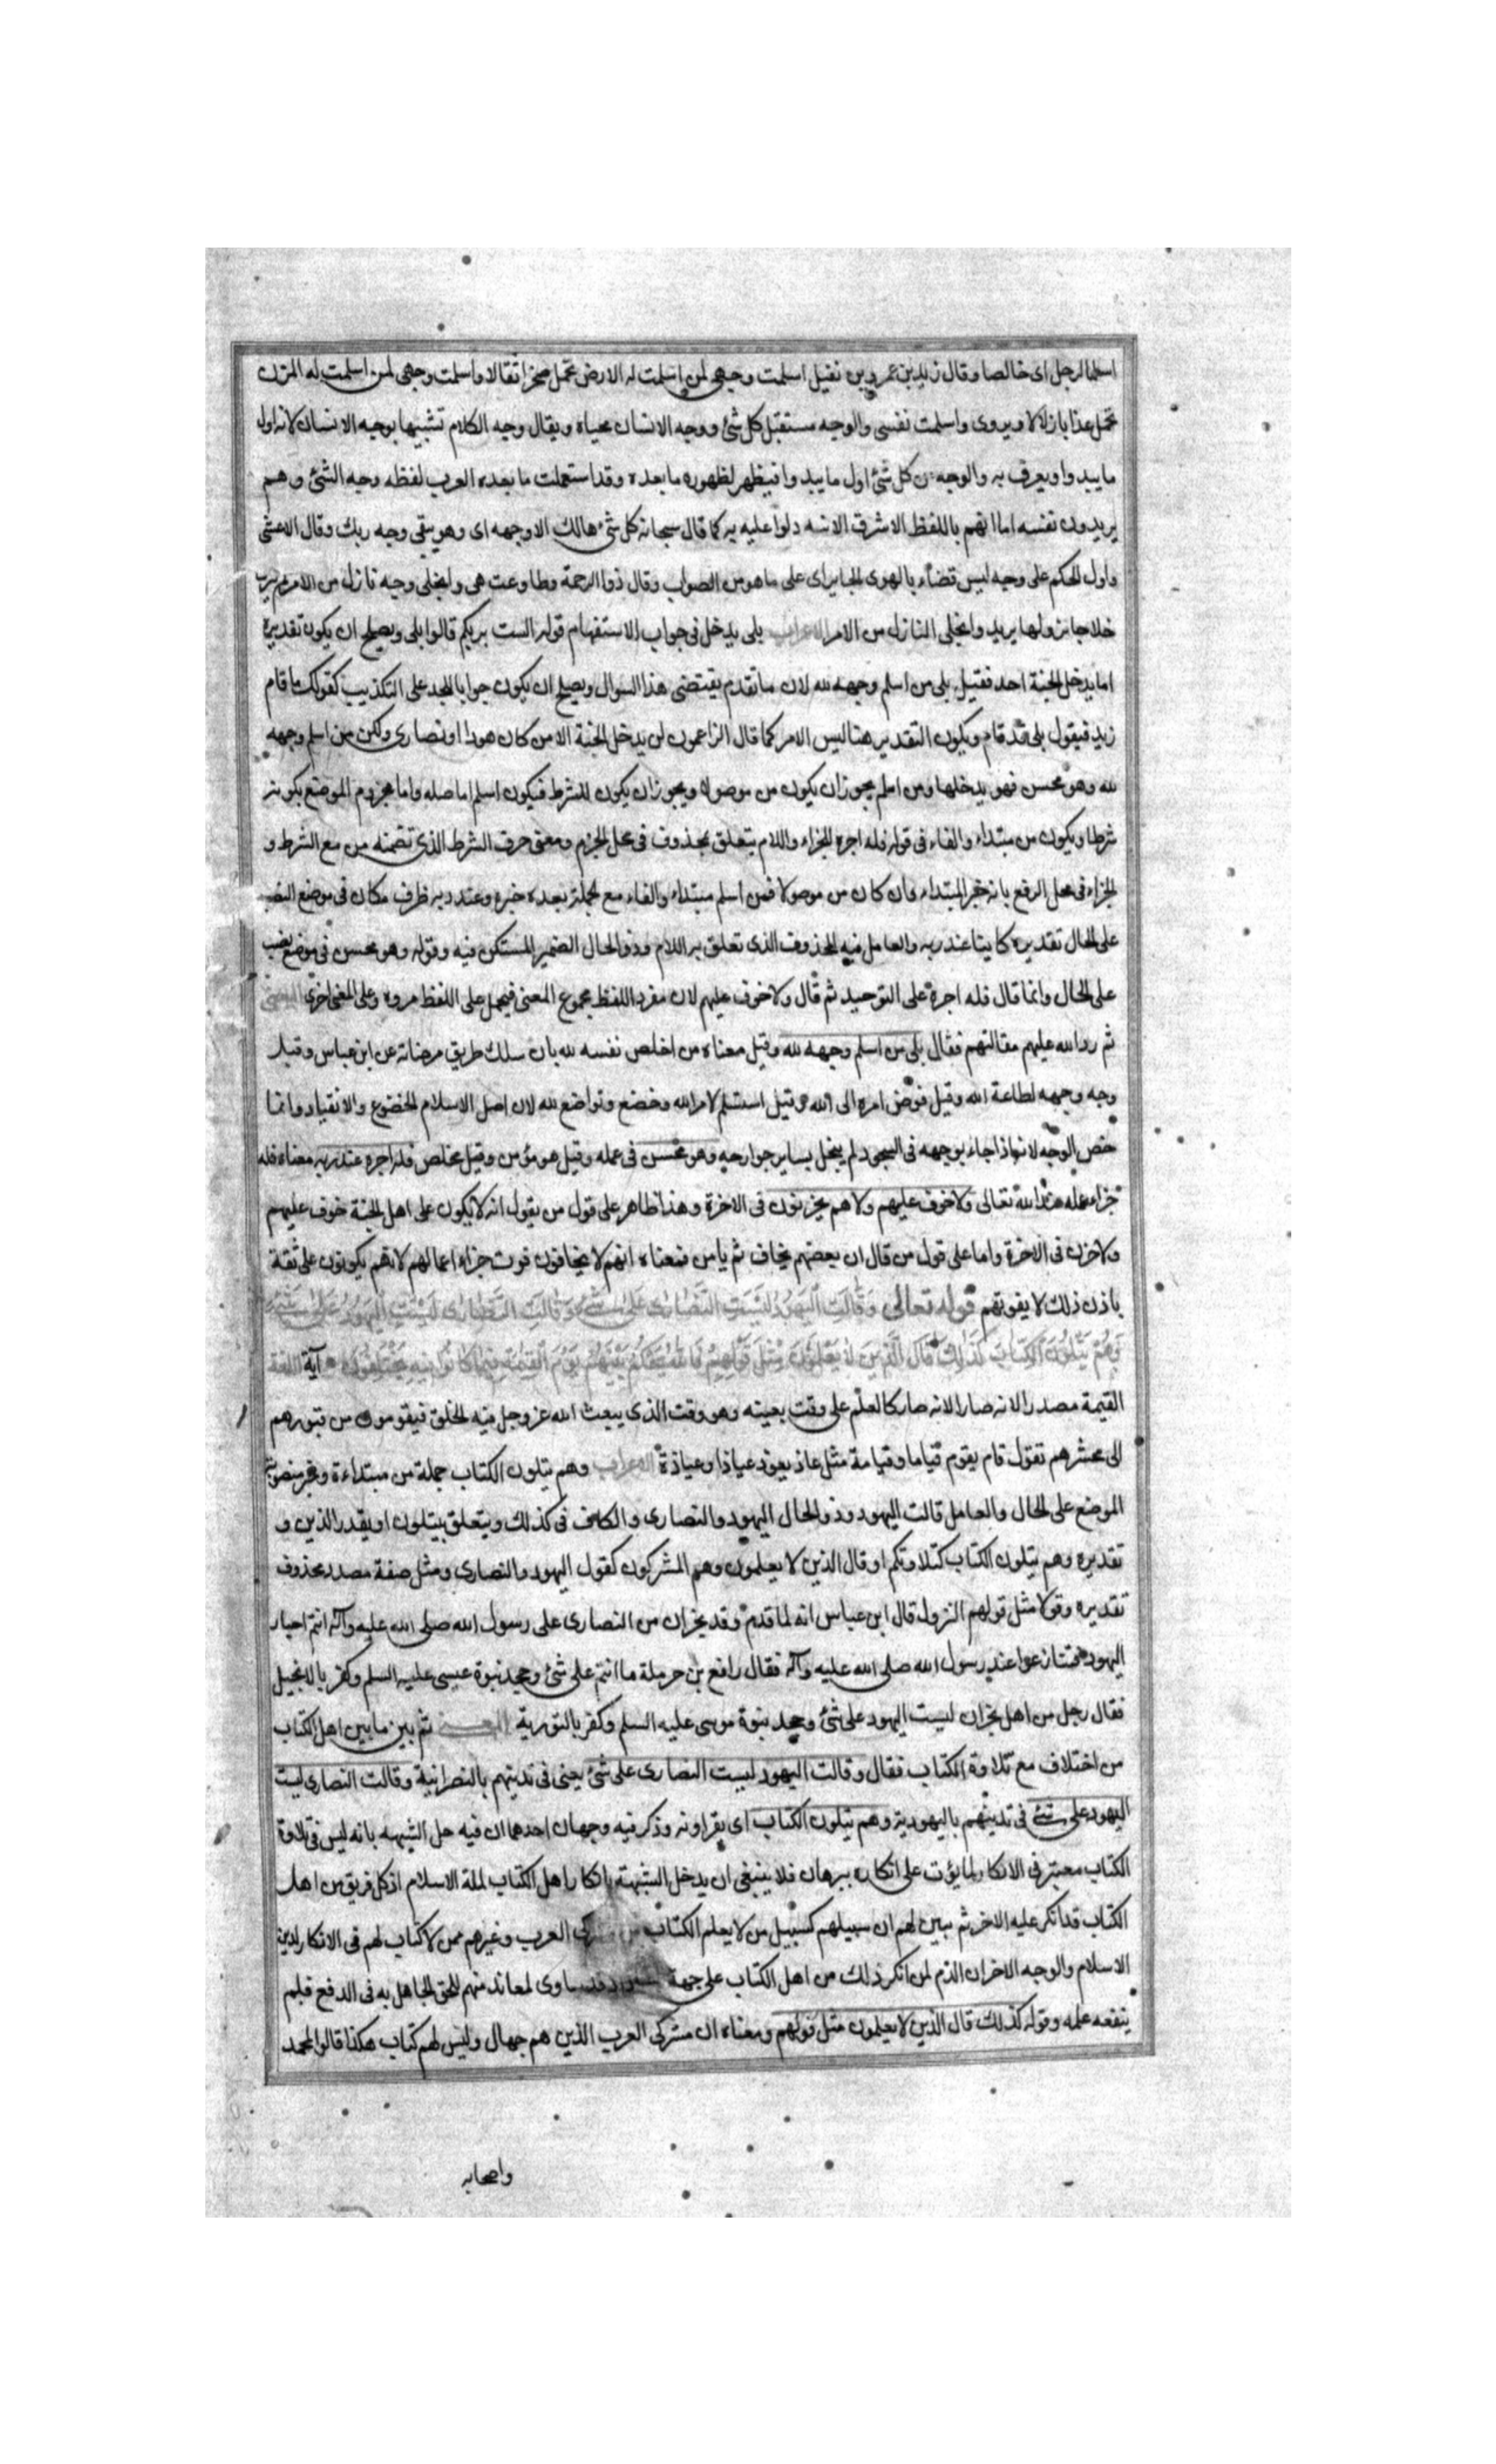 اسلما لرجل اى خالصا وقال زيد بن عمرو بن نفيل اسلمت وجهى لمن اسلمت له الارض تحمل صخرا ثقالا واسلمت وجهى لمن اسلمت له المزن
تحمل عذبا زلالا ويروى واسلمت نفسى والوجه مستقبل كل شئ ووجه الانسان محياه ويقال وجه الكلام تشبيها بوجه الانسان لانه اول
ما يبدوا ويعرف به والوجه من كل شئ اول ما يبدوا فيظهر لظهوره ما بعده وقد استعملت العرب لفظه وجه الشئ وهم
يريدون نفسه اما انهم باللفظ الاشرف الانبه دلوا عليه به كما قال سبحانه كل شئ هالك الا وجهه اى وهو يبقى وجه ربك وقال الاعشى
واول الحكم على وجهه ليس قضاء بالهوى الجاير اى على ما هو من الصواب وقال ذو الرحمة وطاوعت هى وانجلى وجه نازل من الامر لم يترك
خلاجا نزولها يريد وانجلى النازل من الامر الاعراب بلى يدخل فى جواب الاستفهام قوله الست بربكم قالوا بلى ويصلح ان يكون تقديره
اما يدخل الجنة احد فقيل بلى من اسلم وجهه لله لان ما تقدم يقتضى هذا السوال ويصلح ان يكون جوابا للجحد على التكذيب كقولك ما قام
زيد فيقول بلى قد قام ويكون التقدير هنا ليس الامر كما قال الزاعمون لن يدخل الجنة الا من كان هودا او نصارى ولكن من اسلم وجهه
لله وهو محسن فهو يدخلها ومن اسلم يجوز ان يكون من موصولا ويجوز ان يكون للشرط فيكون اسلم اما صله واما مجزوم الموضع بكونه
شرطا ويكون من مبتداء والفاء فى قوله فله اجره للجزاء واللام يتعلق بمحذوف فى محل الجزم ومعنى حرف الشرط الذى تضمنه من مع الشرط و
الجزاء فى محل الرفع بانه خبر المبتداء فان كان من موصولا فمن اسلم مبتداء والفاء مع الجملة بعده خبره وعند ربه ظرف مكان فى موضع النصب
على الحال تقديره كاينا عند ربه والعامل فيه المحذوف الذى تعلق به اللام وذو الحال الضمير المستكن فيه وقوله وهو محسن فى موضع نصب
على الحال وانما قال فله اجره على التوحيد ثم قال ولا خوف عليهم لان من مفرد اللفظ مجموع المعنى فيحمل على اللفظ مرة وعلى المعنى اخرى المعنى
ثم رد الله عليهم مقالتهم فقال بلى من اسلم وجهه لله وقيل معناه من اخلص نفسه لله بان سلك طريق مرضاته عن ابن عباس وقيل
وجه وجهه لطاعة الله وقيل فوض امره الى الله وقيل استسلم لامر الله وخضع وتواضع لله لان اصل الاسلام الخضوع والانقياد وانما
خص الوجه لانه اذا جاء بوجهه فى السجود لم يبخل بساير جوارحه وهو محسن فى عمله وقيل هو مؤمن وقيل مخلص فله اجره عند ربه معناه فله
جزاء عمله عند الله تعالى ولا خوف عليهم ولا هم يحزنون فى الاخرة وهذا ظاهر على قول من يقول انه لا يكون على اهل الجنة خوف عليهم
ولا حزن فى الاخرة واما على قول من قال ان بعضهم يخاف ثم يامن فمعناه انهم لا يخافون فوت جزاء اعمالهم لانهم يكونون على ثقة
باذن ذلك لا يفوتهم قوله تعالى وَقَالَتِ الْيَهُودُ لَيْسَتِ النَّصَارَى عَلَى شَىْءٍ وَقَالَتِ النَّصَارَى لَيْسَتِ الْيَهُودُ عَلَى شَىْءٍ
وَهُمْ يَتْلُونَ الْكِتَابَ كَذَلِكَ قَالَ الَّذِينَ لَا يَعْلَمُونَ مِثْلَ قَوْلِهِمْ فَاللَّهُ يَحْكُمُ بَيْنَهُمْ يَوْمَ الْقِيمَةِ فِيمَا كَانُوا فِيهِ يَخْتَلِفُونَ آية اللغة
القيمة مصدر الا انه صار كالعلم على وقت بعينه وهو وقت الذى يبعث الله عز وجل فيه الخلق فيقومون من قبورهم
الى محشرهم تقول قام يقوم قياما وقيامة مثل عاذ يعوذ عياذا وعياذة الاعراب وهم يتلون الكتاب جملة من مبتداءة وخبر منصوبة
الموضع على الحال والعامل قالت اليهود وذو الحال اليهود والنصارى والكاف فى كذلك ويتعلق بيتلون او يقدر الذين و
تقديره وهم يتلون الكتاب كتلاوتكم او قال الذين لا يعلمون وهم المشركون كقول اليهود والنصارى ومثل صفة مصدر محذوف
تقديره وقولا مثل قولهم النزول قال ابن عباس انه لما قدم وفد نجران من النصارى على رسول الله صلى الله عليه وآله اتتهم احبار
اليهود فتنازعوا عند رسول الله صلى الله عليه وآله فقال رافع بن حرملة ما انتم على شئ وجحد نبوة عيسى عليه السلم وكفر بالانجيل
فقال رجل من اهل نجران ليست اليهود على شئ وجحد بنوة موسى عليه السلم وكفر بالتورية المعنى ثم بين ما بين اهل الكتاب
من اختلاف مع تلاوة الكتاب فقال وقالت اليهود ليست النصارى على شئ يعنى فى تدينهم بالنصرانية وقالت النصارى ليست
اليهود على شئ فى تدينهم باليهودية وهم يتلون الكتاب اى يقراونه وذكر فيه وجهان احدهما ان فيه حل الشبهه بانه ليس فى تلاوة
الكتاب معتبر فى الانكار لما يؤت على انكاره ببرهان فلا ينبغى ان يدخل الشبهة بانكار اهل الكتاب لملة الاسلام اذ كل فريق من اهل
الكتاب قد انكر عليه الاخر ثم بين لهم ان سبيلهم كسبيل من لا يعلم الكتاب من مشركى العرب وغيرهم ممن لا كتاب لهم فى الانكار لدين
الاسلام والوجه الاخر ان الذم لمن انكر ذلك من اهل الكتاب على جهة وقد ساوى لمعاند منهم للحق الجاهل به فى الدفع فلم
ينفعه علمه وقوله كذلك قال الذين لا يعلمون مثل قولهم ومعناه ان مشركى العرب الذين هم جهال وليس لهم كتاب هكذا قالوا لمحمد
واصحابه